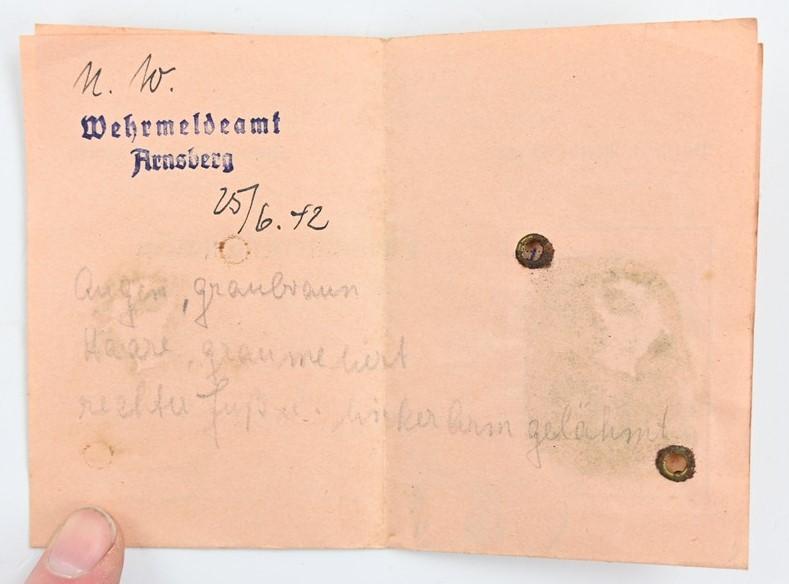 n. W.
Wehrmeldeamt
Arnsberg
25/6.42
Augen, graubraun
Haare, graumeliert
rechter Fuß u. linker Arm gelähmt